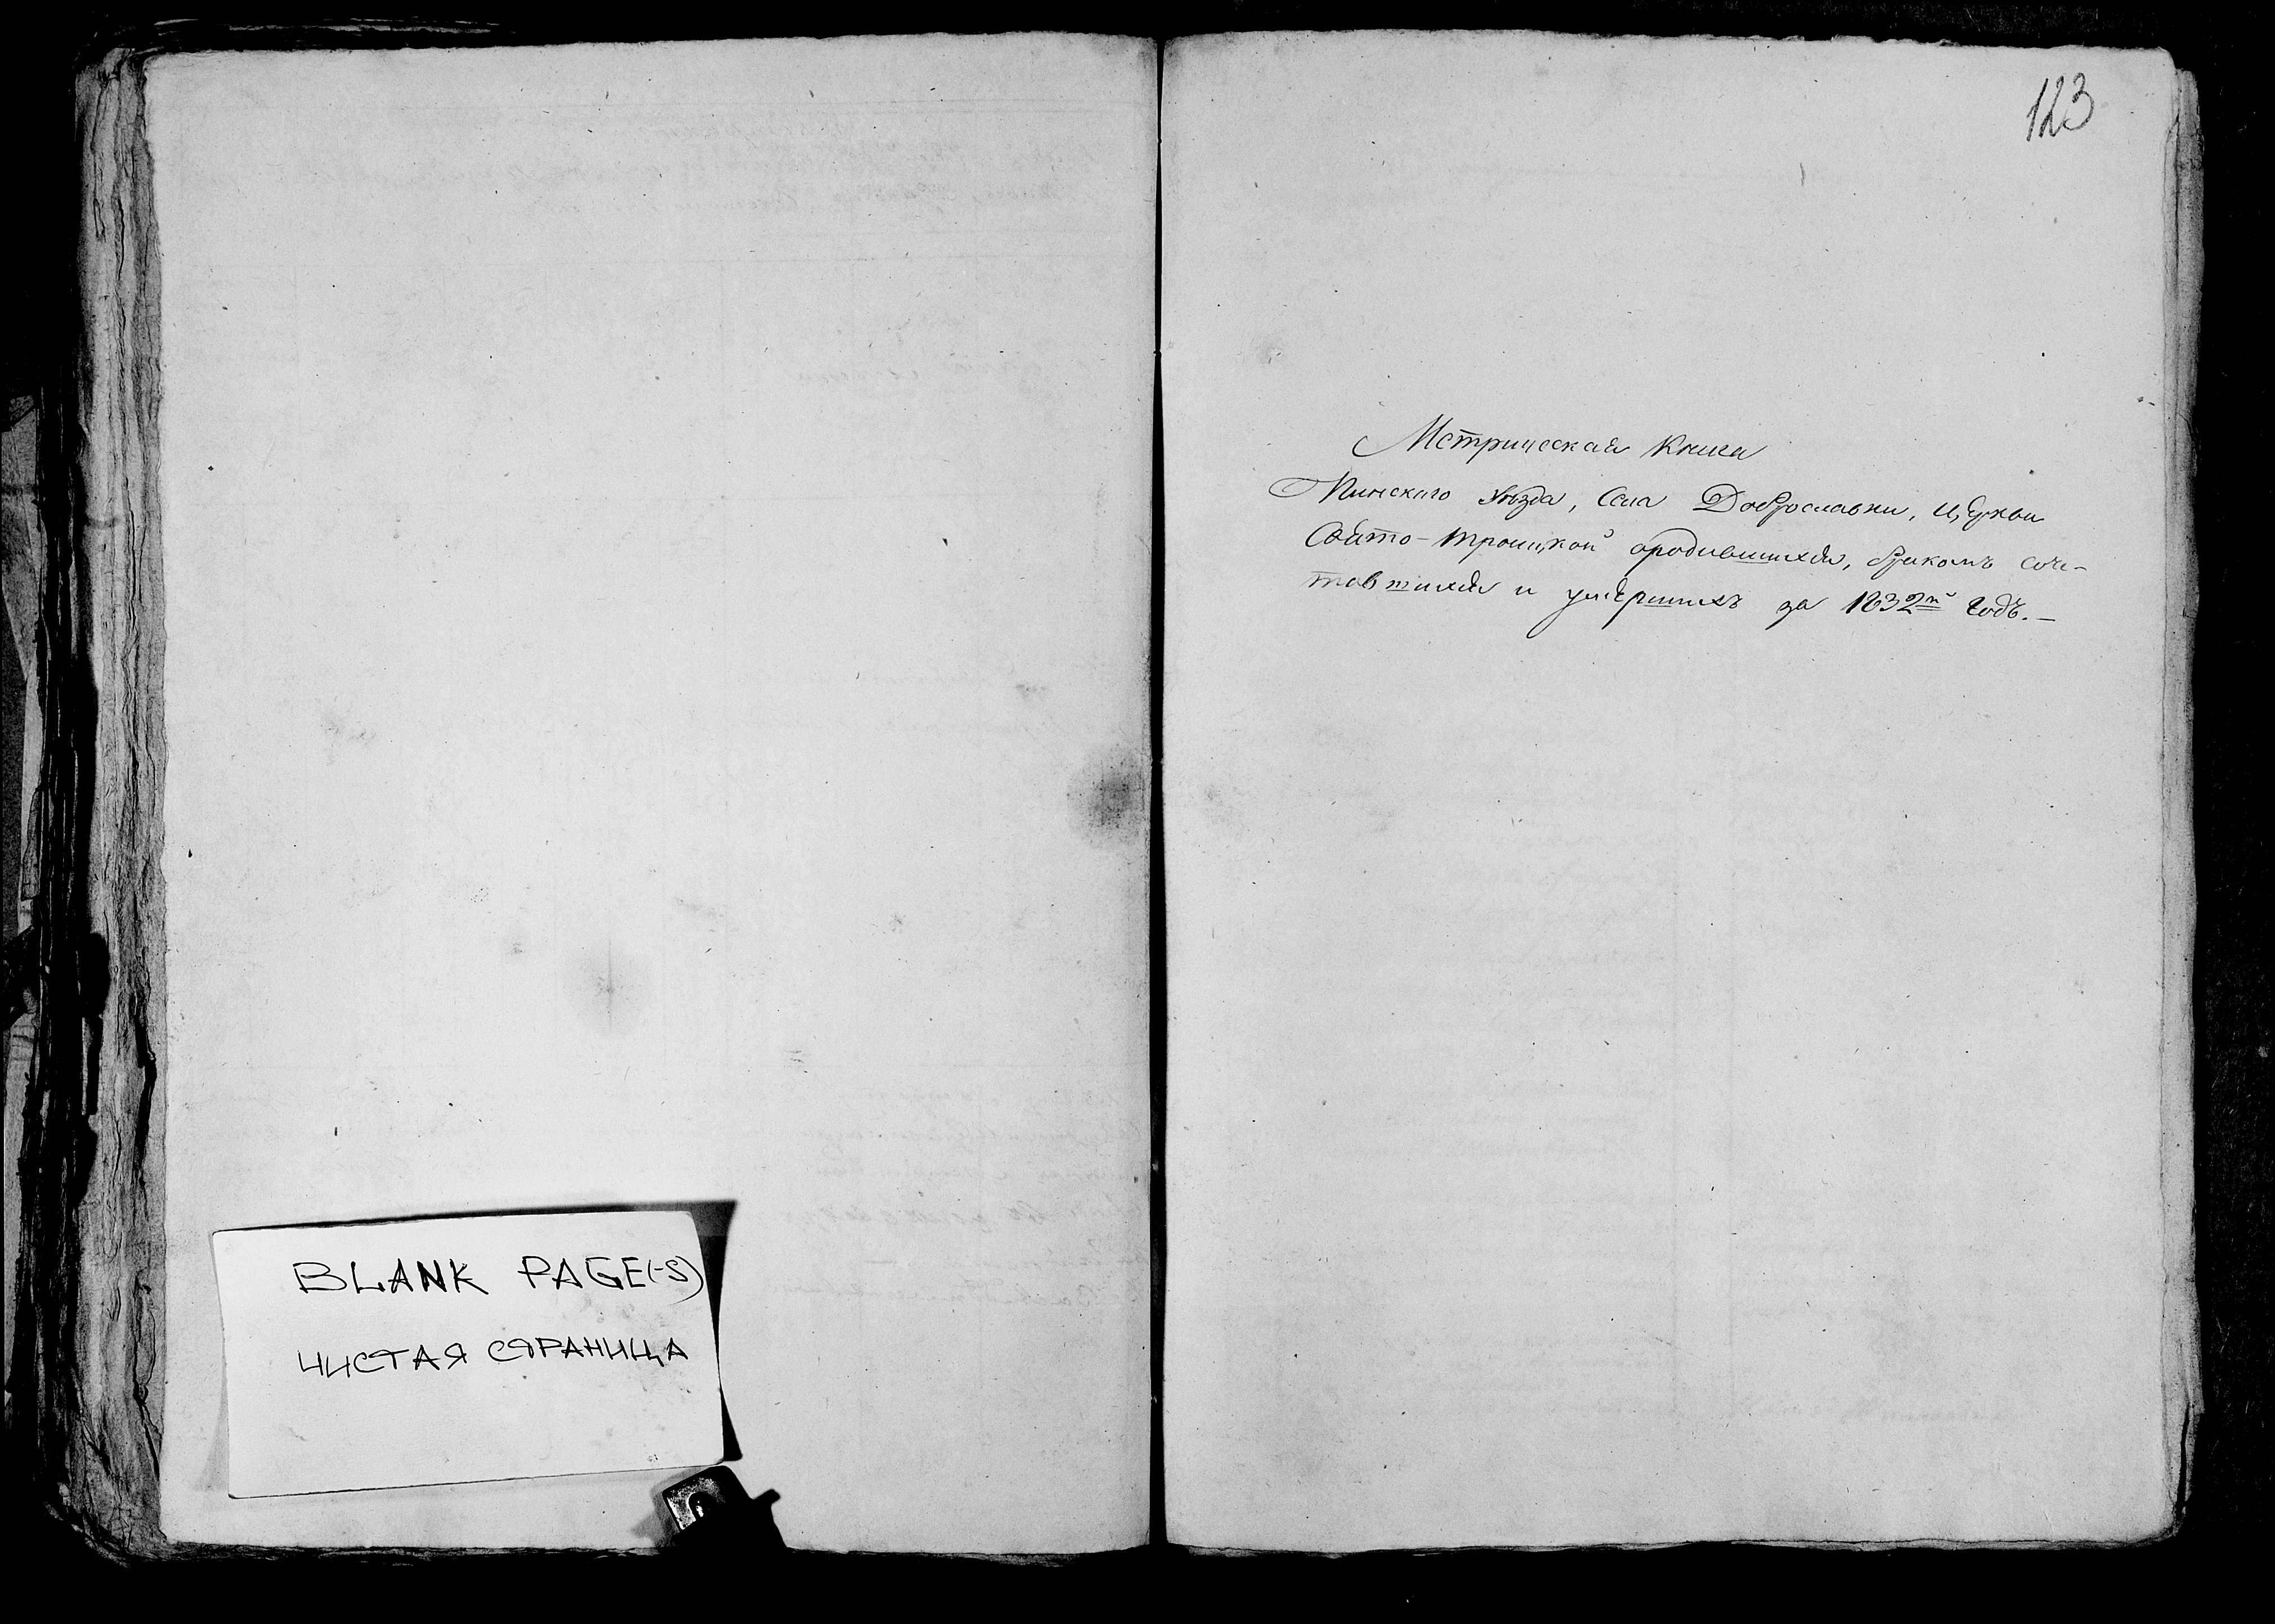 BLANK PAGE(-S)
ЧИСТАЯ СТРАНИЦА
123
Метрическая Книга
Пинского Уѣзда, Села Доброславки, Церкви
Свято-Троицкой ородившихся, бракомъ соче-
тавшихся и умершихъ за 1832й Годъ.–